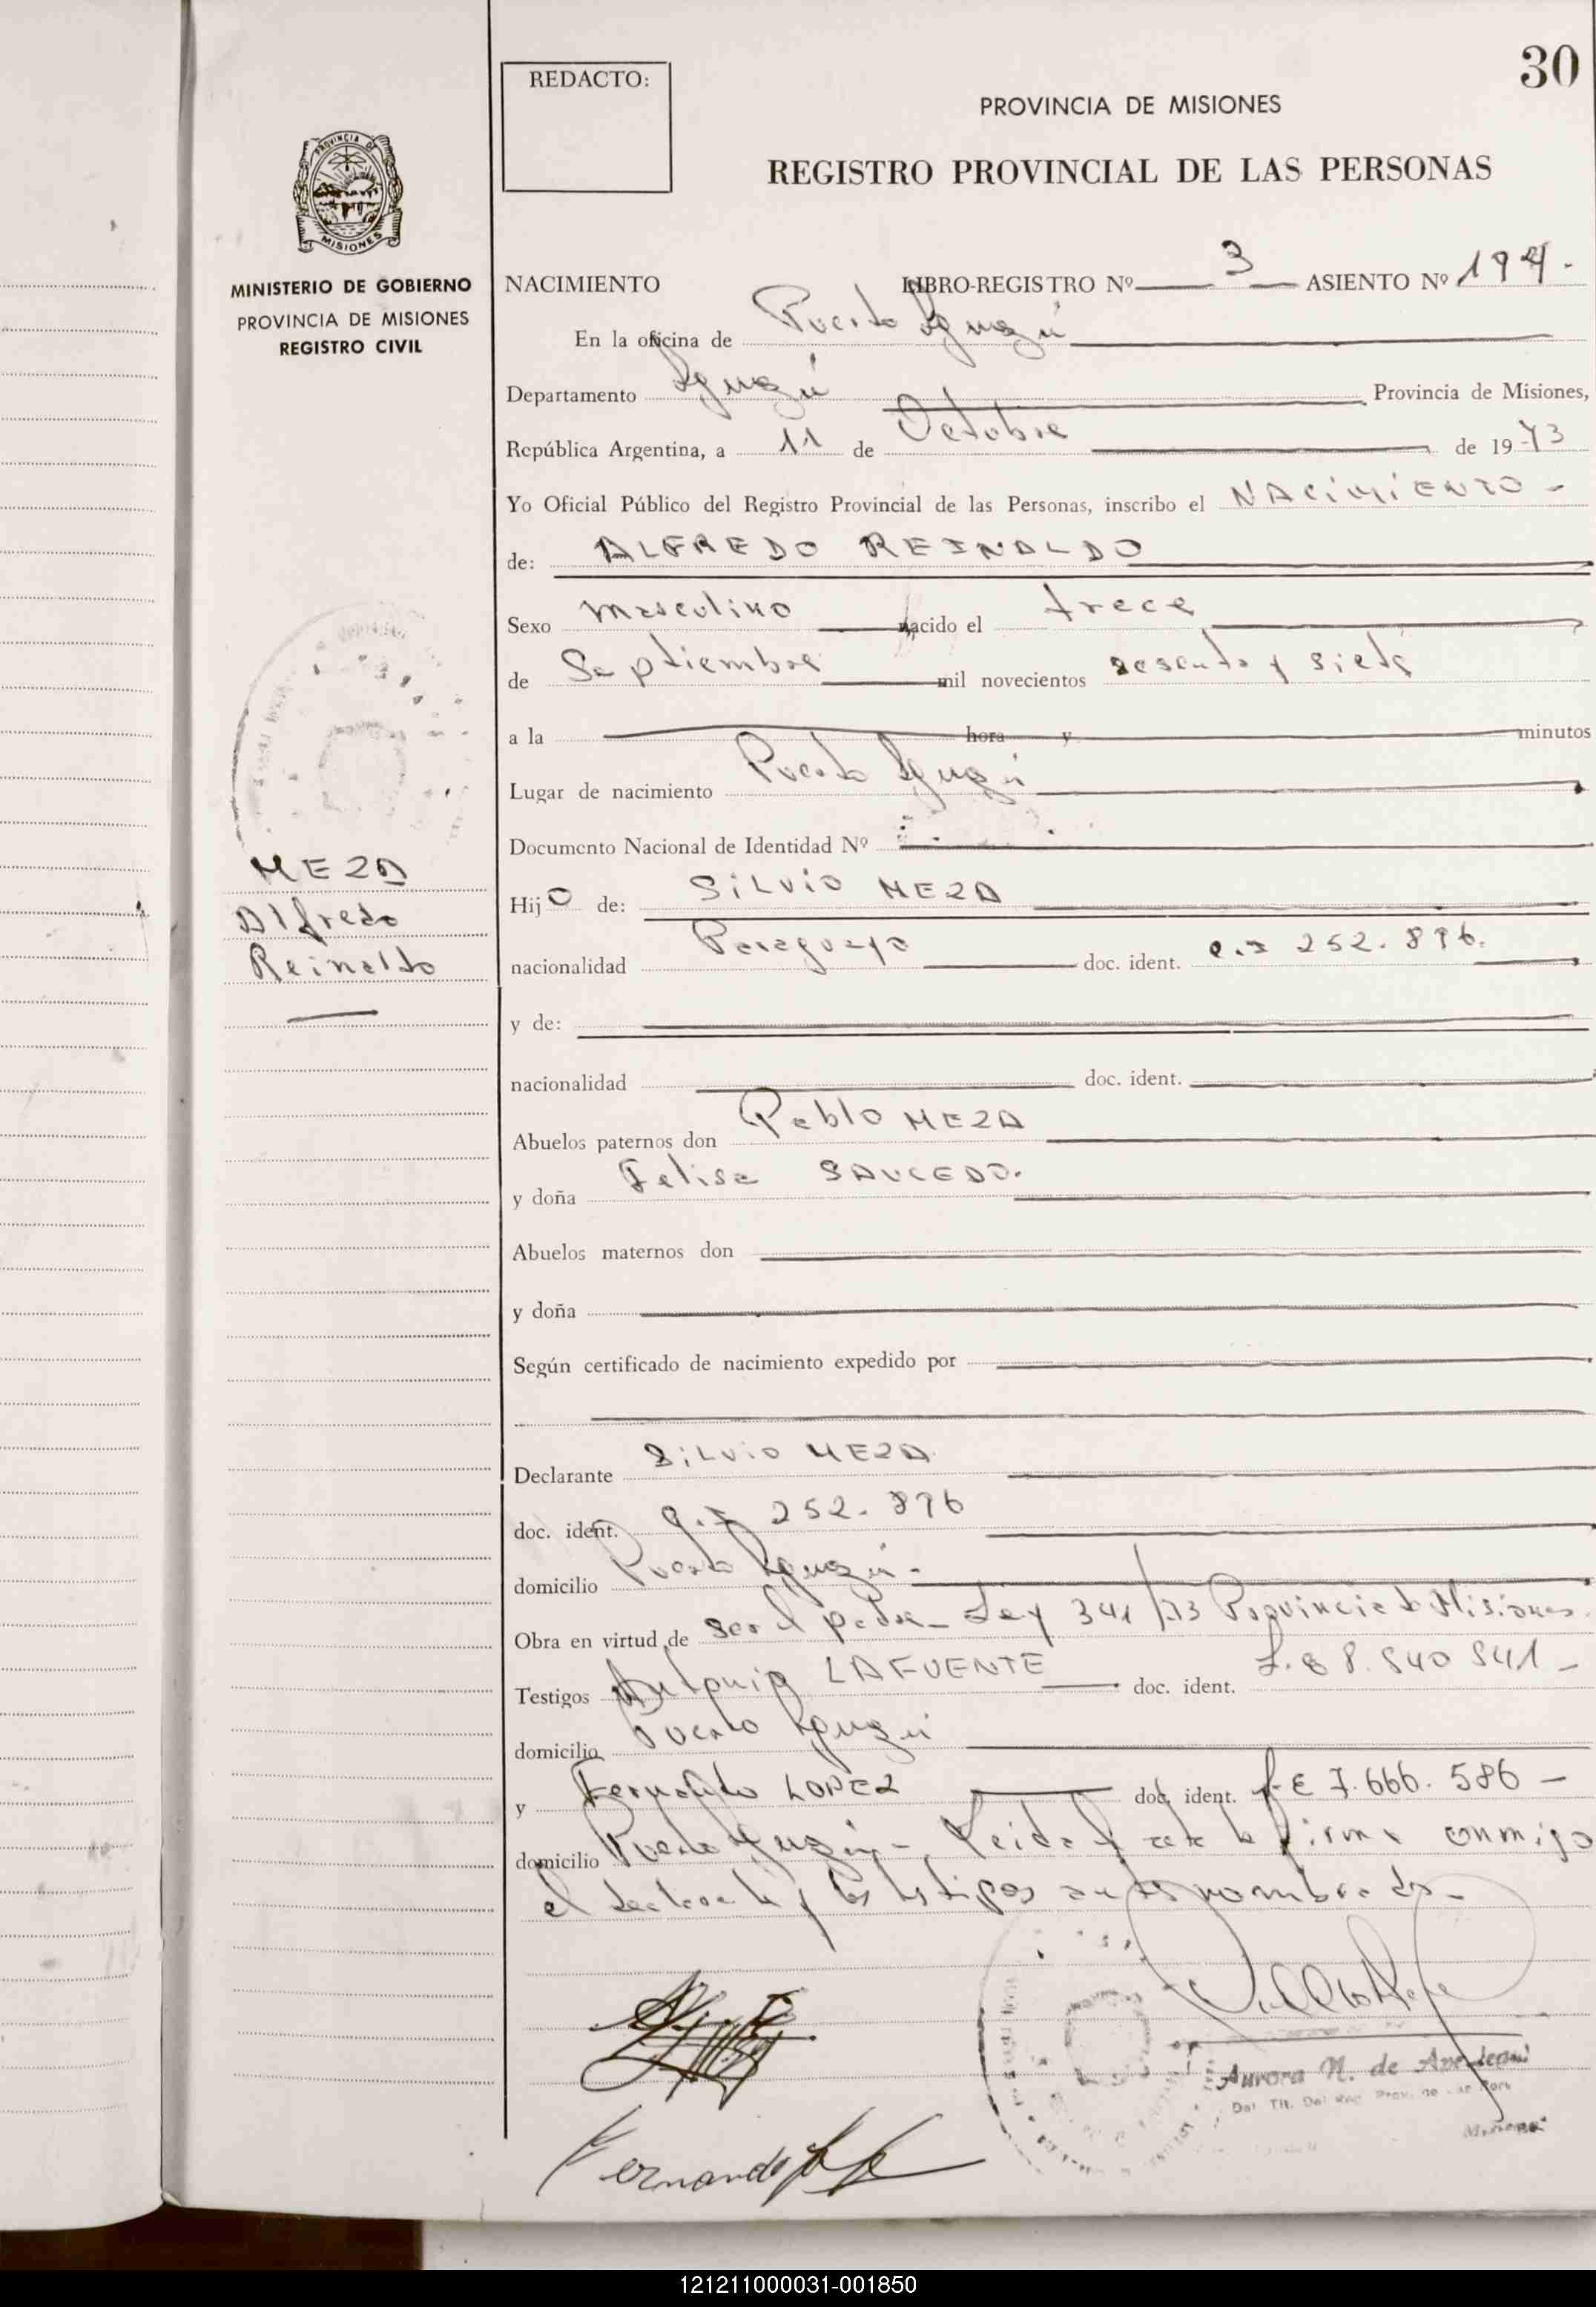 30
REDACTO:
PROVINCIA DE MISIONES
REGISTRO PROVINCIAL DE LAS PERSONAS
PROVINCIA DE
MISIONES
MINISTERIO DE GOBIERNO
PROVINCIA DE MISIONES
REGISTRO CIVIL
NACIMIENTO LIBRO-REGISTRO Nº 3 ASIENTO Nº
En la oficina de Puerto Iguazú
Departamento Iguazú Provincia de Misiones,
República Argentina, a 11 de Octubre de 1973
Yo Oficial Público del Registro Provincial de las Personas, inscribo el NACIMIENTO -
de: ALFREDO REINALDO
Sexo masculino nacido el trece
de Septiembre mil novecientos sesenta y siete
a la hora y minutos
Lugar de nacimiento Puerto Iguazú
Documento Nacional de Identidad Nº
MEZA
Alfredo
Reinaldo
Hijo de: SILVIO MEZA
nacionalidad Paraguayo doc. ident. 252.896.
y de:
nacionalidad doc. ident.
Abuelos paternos don Pablo MEZA
y doña Felisa SAUCEDO.
Abuelos maternos don
y doña
Según certificado de nacimiento expedido por
Declarante SILVIO MEZA.
doc. ident. 252.896
domicilio Puerto Iguazú.-
Obra en virtud de ser el padre - Ley 341/73 Provincia de Misiones.
Testigos Antonio LAFUENTE doc. ident. 8.540 541 -
domicilio Puerto Iguazú
y Fernando LOPEZ doc. ident. L.E 7.666.586 -
domicilio Puerto Iguazú - Leida el acta la firma conmigo
el declarante y los testigos antes nombrados -
Aurora N. de
Fernando
121211000031-001850